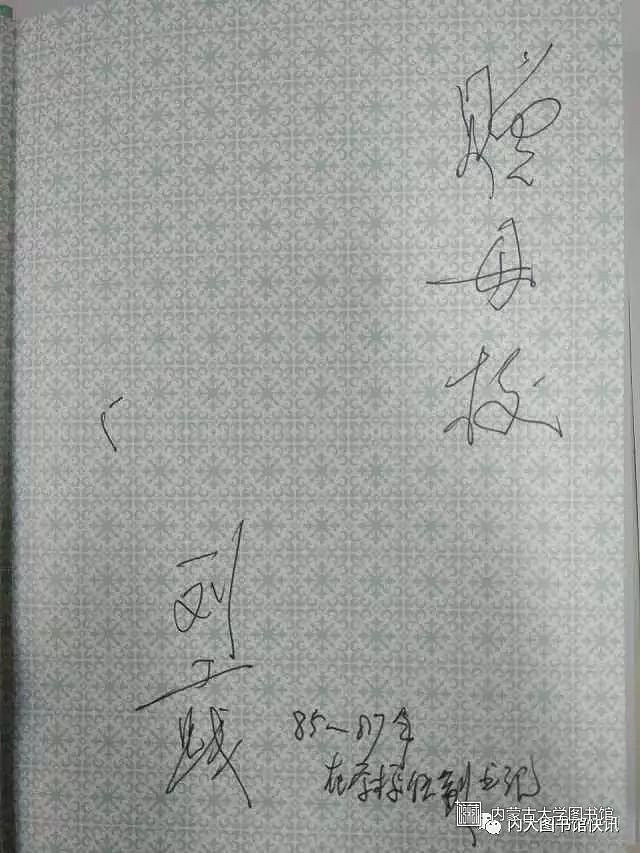 赠母校
刘
85—87年
在学校任副书记
内蒙古大学图书馆
内大图书馆快讯